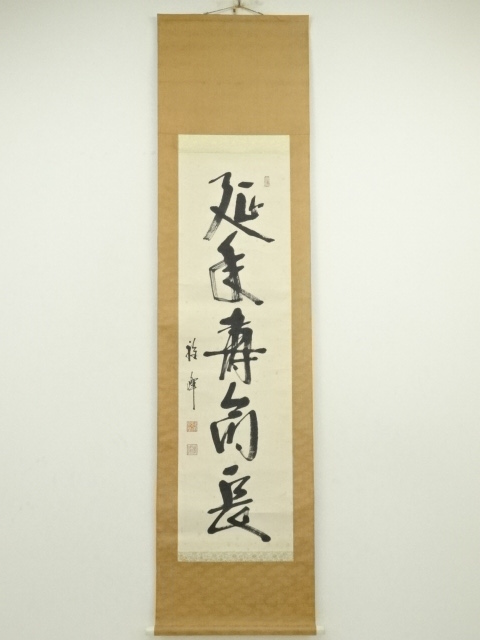 延年壽命長